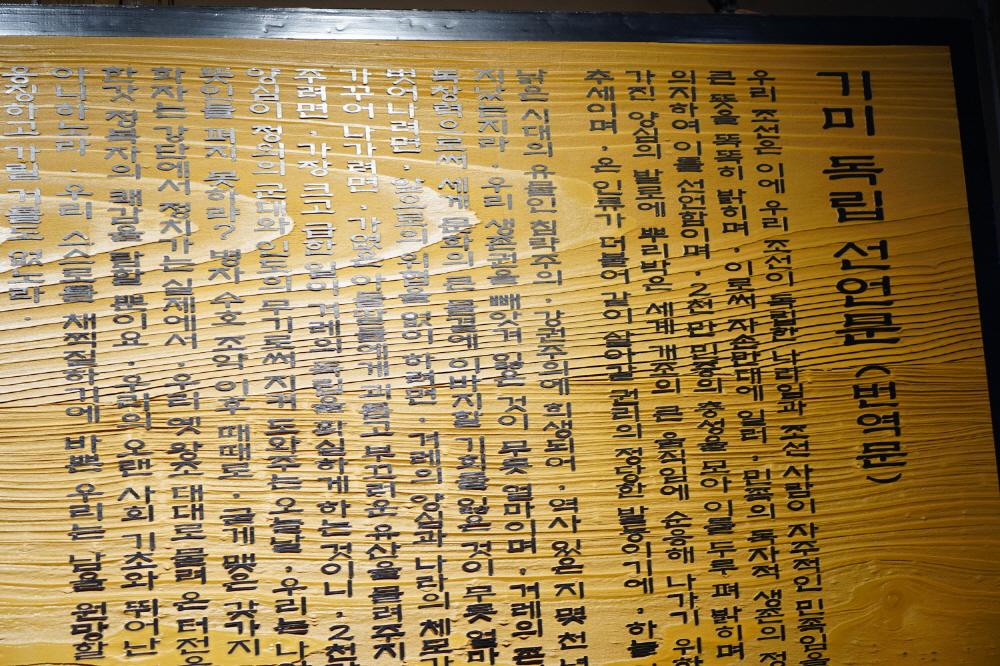 기미 독립 선언문 (번역문)
우리 조선은 이에 우리 조선이 독립한 나라임과 조선 사람이 자주적인 민족임을
큰 뜻을 똑똑히 밝히며, 이로써 자손만대에 일러, 민족의 독자적 생존의 정
의지하여 이를 선언함이며, 2천만 민중의 충성을 모아 이를 두루 펴 밝히며
가진 양심의 발로에 뿌리박은 세계 개조의 큰 움직임에 순응해 나가기 위하
추세이며, 온 인류가 더불어 같이 살아갈 권리의 정당한 발동이기에, 하늘
낡은 시대의 유물인 침략주의, 강권주의에 희생되어, 역사 있은 지 몇 천 년
지났는지라, 우리 생존권을 빼앗겨 잃은 것이 무릇 얼마이며, 겨레의 존
독창력으로써 세계 문화의 큰 물결에 이바지할 기회를 잃은 것이 무릇 얼마
벗어나려면, 앞으로의 위협을 없이 하려면, 겨레의 양심과 나라의 체모가
가꾸어 나가려면, 가엾은 아들딸에게 괴롭고 부끄러운 유산을 물려주지
주려면, 가장 크고 급한 일이 겨레의 독립을 확실하게 하는 것이니, 2천만
양심이 정의의 군대와 인도의 무기로써 지켜 도와주는 오늘날, 우리는 나
뜻인들 펴지 못하랴? 병자 수호 조약 이후 때때로, 굳게 맺은 갖가지
학자는 강단에서 정치가는 실제에서, 우리 옛 왕조 대대로 물려 온 터전을
한갓 정복자의 쾌감을 탐할 뿐이요, 우리의 오랜 사회 기초와 뛰어난
아니하노라. 우리 스스로를 채찍질하기에 바쁜 우리는 남을 원망할
응징하고 가릴 겨를도 없노라.